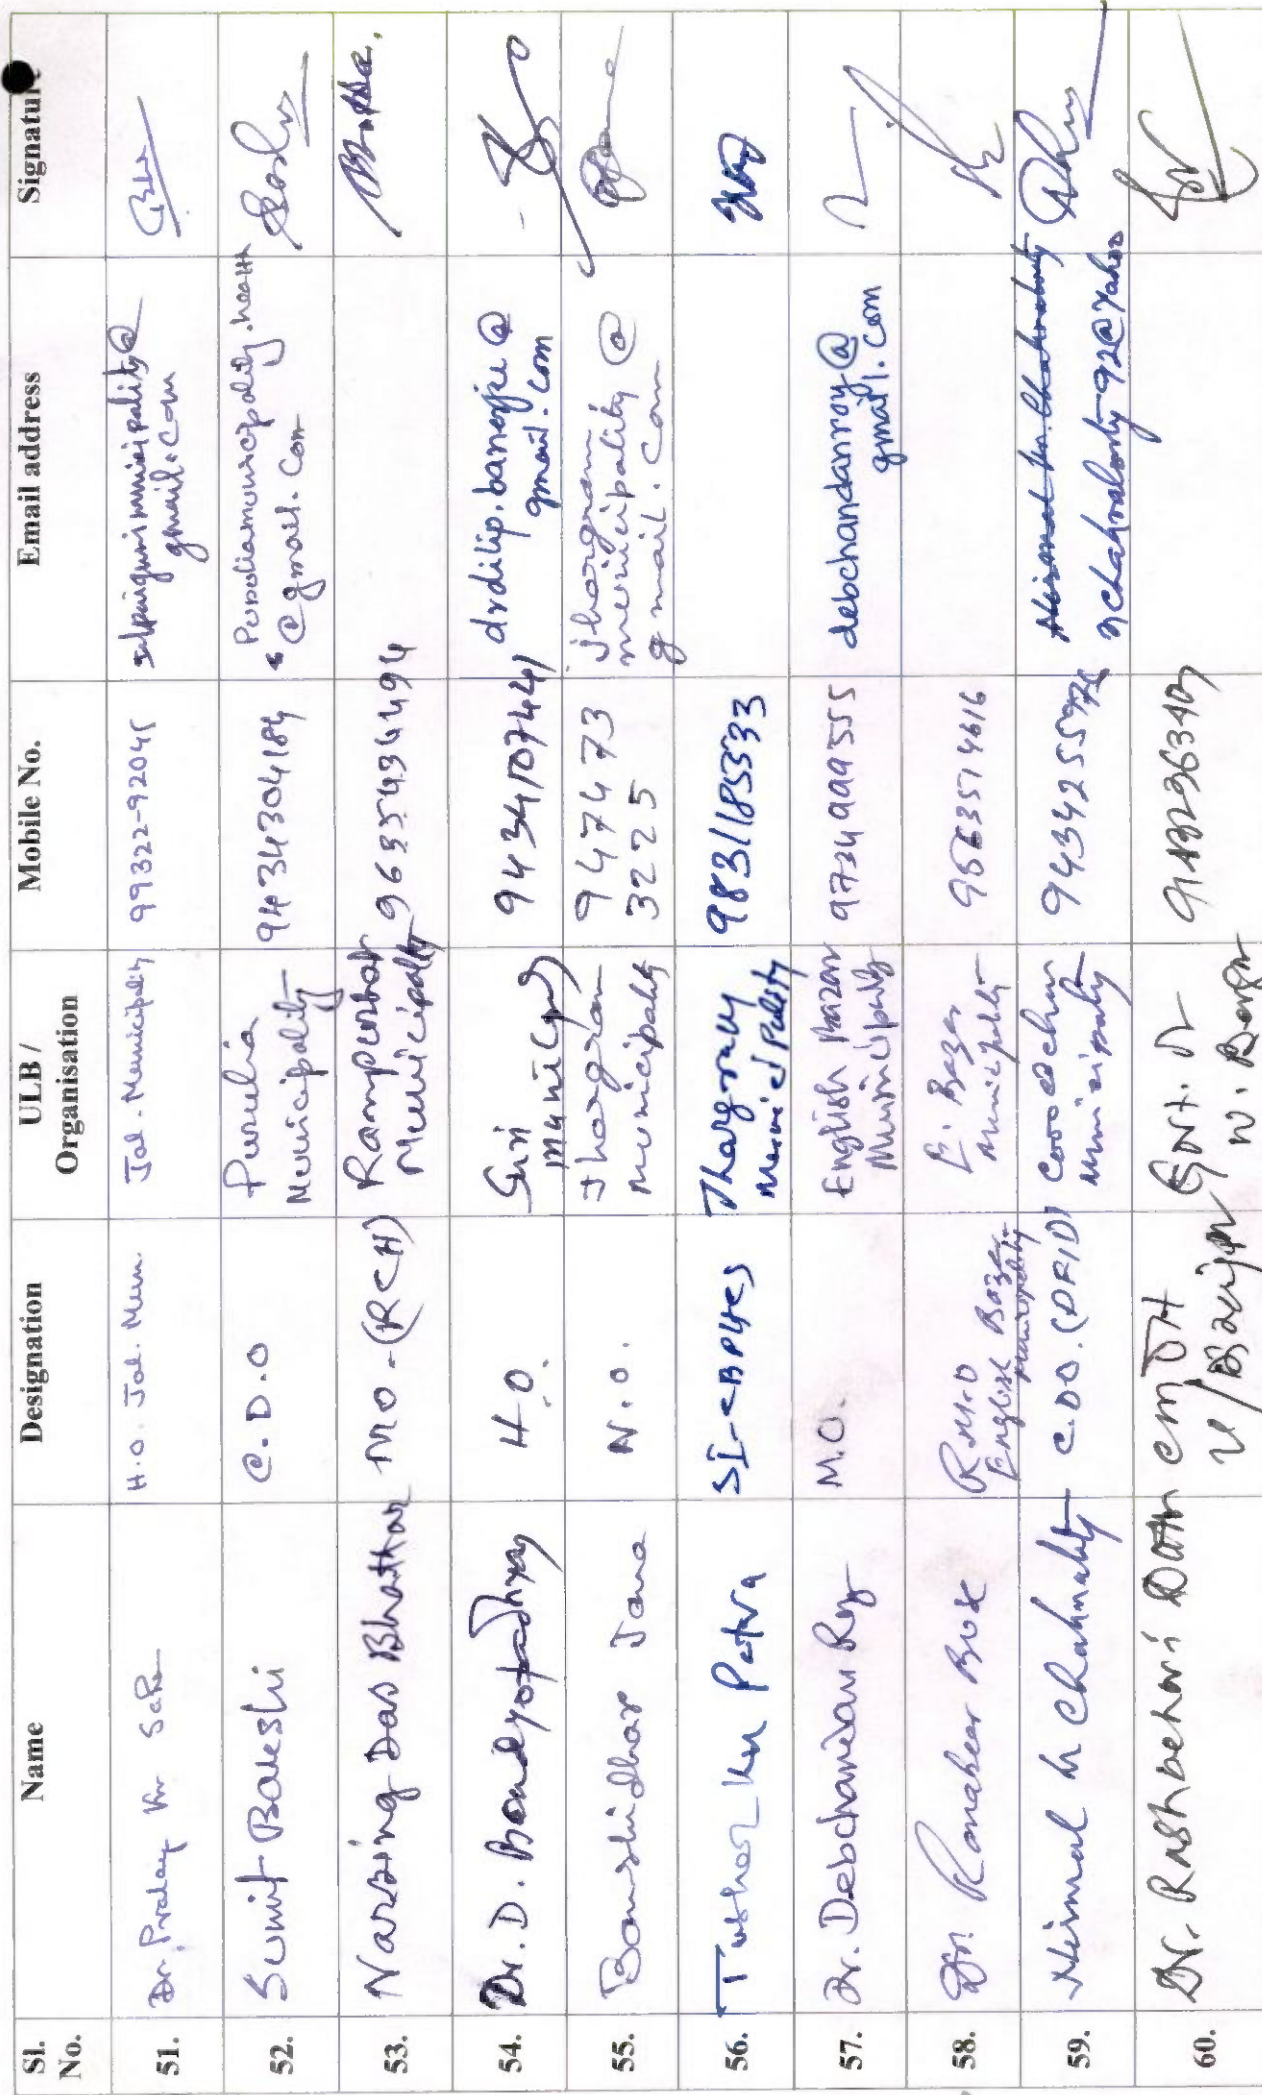 Sl. No.
Name
Designation
ULB / Organisation
Mobile No.
Email address
Signature
51.
Dr. Pralay Kr Saha
H.O. Jal. Mun
Jal. Municipality
99322-92045
jalpaigurimunicipality@
gmail.com
52.
Sumit Bakshi
C.D.O
Purulia
Municipality
9434304184
Puruliamunicipality.health
@gmail.com
53.
Narsing Das Bhattar
MO-(RCH)
Rampurhat
Municipality
9635434494
54.
Dr. D. Bandyopadhyay
H.O.
Suri
9434107441
drdilip.banerjee@
gmail.com
55.
Banshidhar Jana
N.O.
Jhargram
Municipality
947473
3225
Jhargram
municipality@
gmail.com
56.
Tushar Kr Patra
SI-CBPHCS
Jhargram
Municipality
9831185333
57.
Dr. Debchandan Roy
M.O.
English Bazar
Municipality
9734999555
debchandanroy@
gmail.com
58.
Dr.
English Bazar
Municipality
E. Bazar
Municipality
59.
Nirmal Kr Chakraborty
C.D.O. (DFID)
Municipality
60.
Dr. Rashbehari Dutta
CMOH
Govt. of
W. Bengal